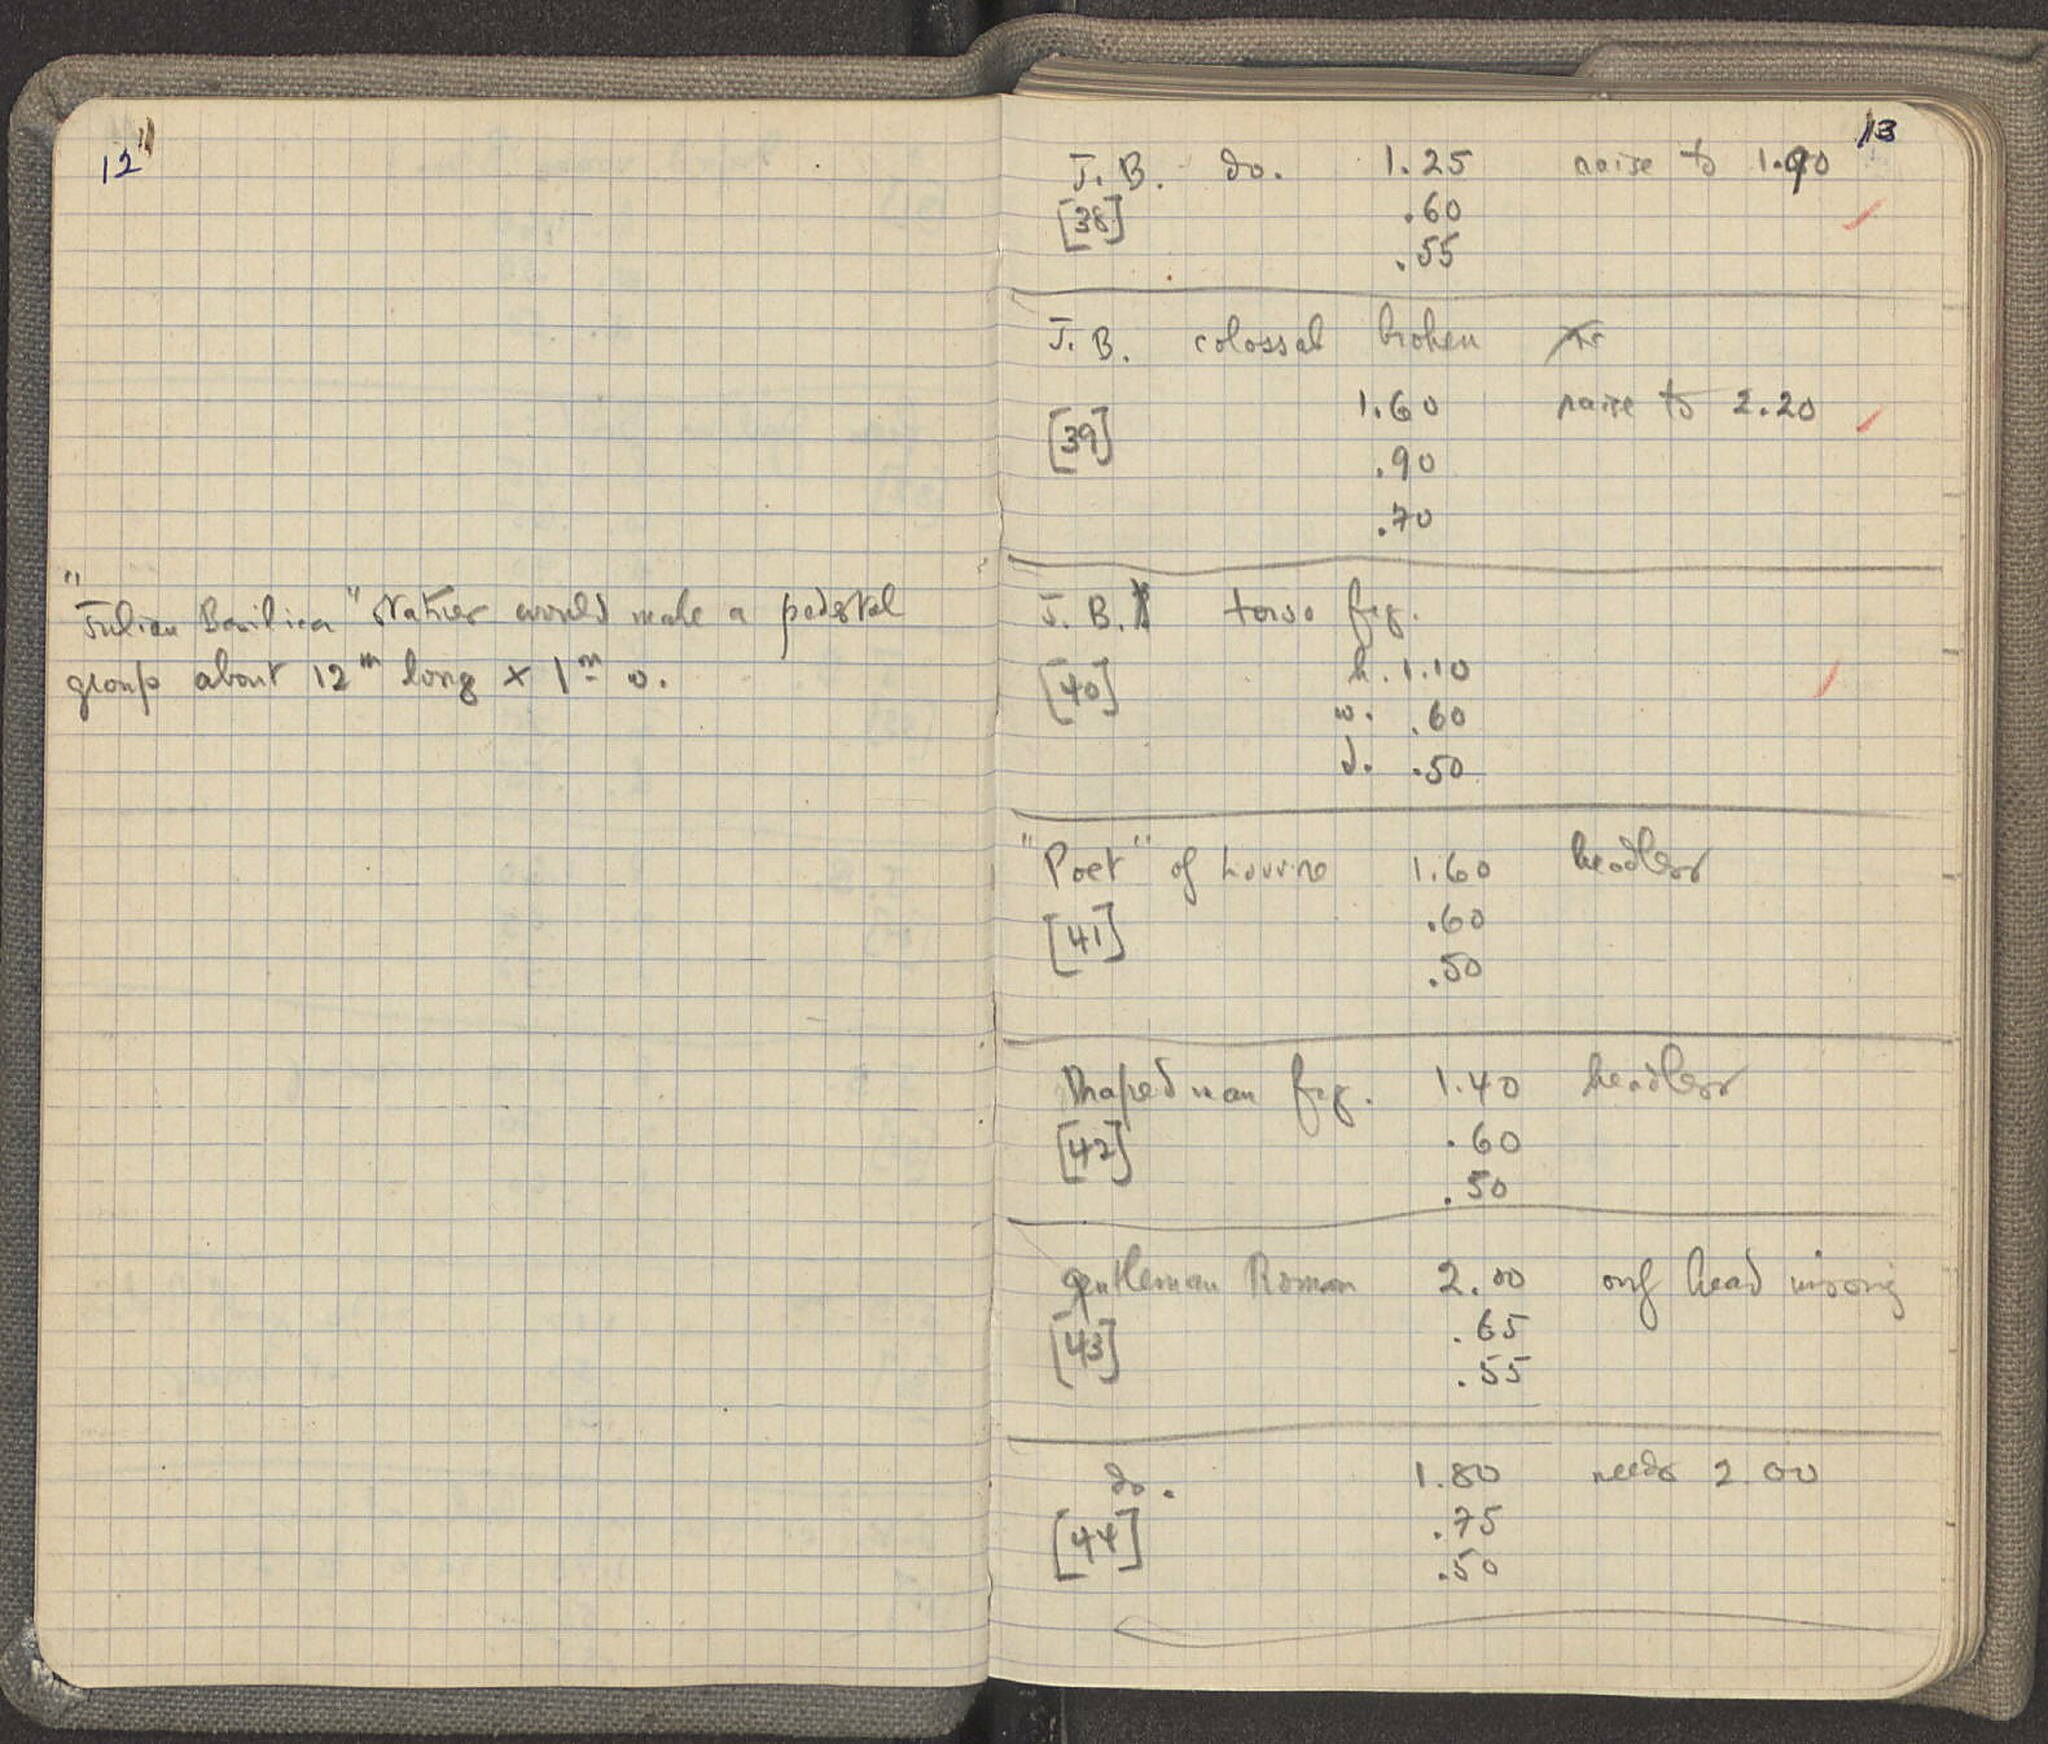 12
"Julian Basilica" Statues would make a pedestal
group about 12 m long x 1 m 0.
13
J. B. do. 1.25 raise to 1.90
[38] .60
.55
J. B. colossal broken
1.60 raise to 2.20
[39] .90
.70
J. B. torso fig.
[40] h. 1.10
w. .60
d. .50
"Poet" of Louvre 1.60 headless
[41] .60
.50
Draped man fig. 1.40 headless
[42] .60
.50
gentleman Roman 2.00 only head missing
[43] .65
.55
do. 1.80 needs 2.00
[44] .75
.50